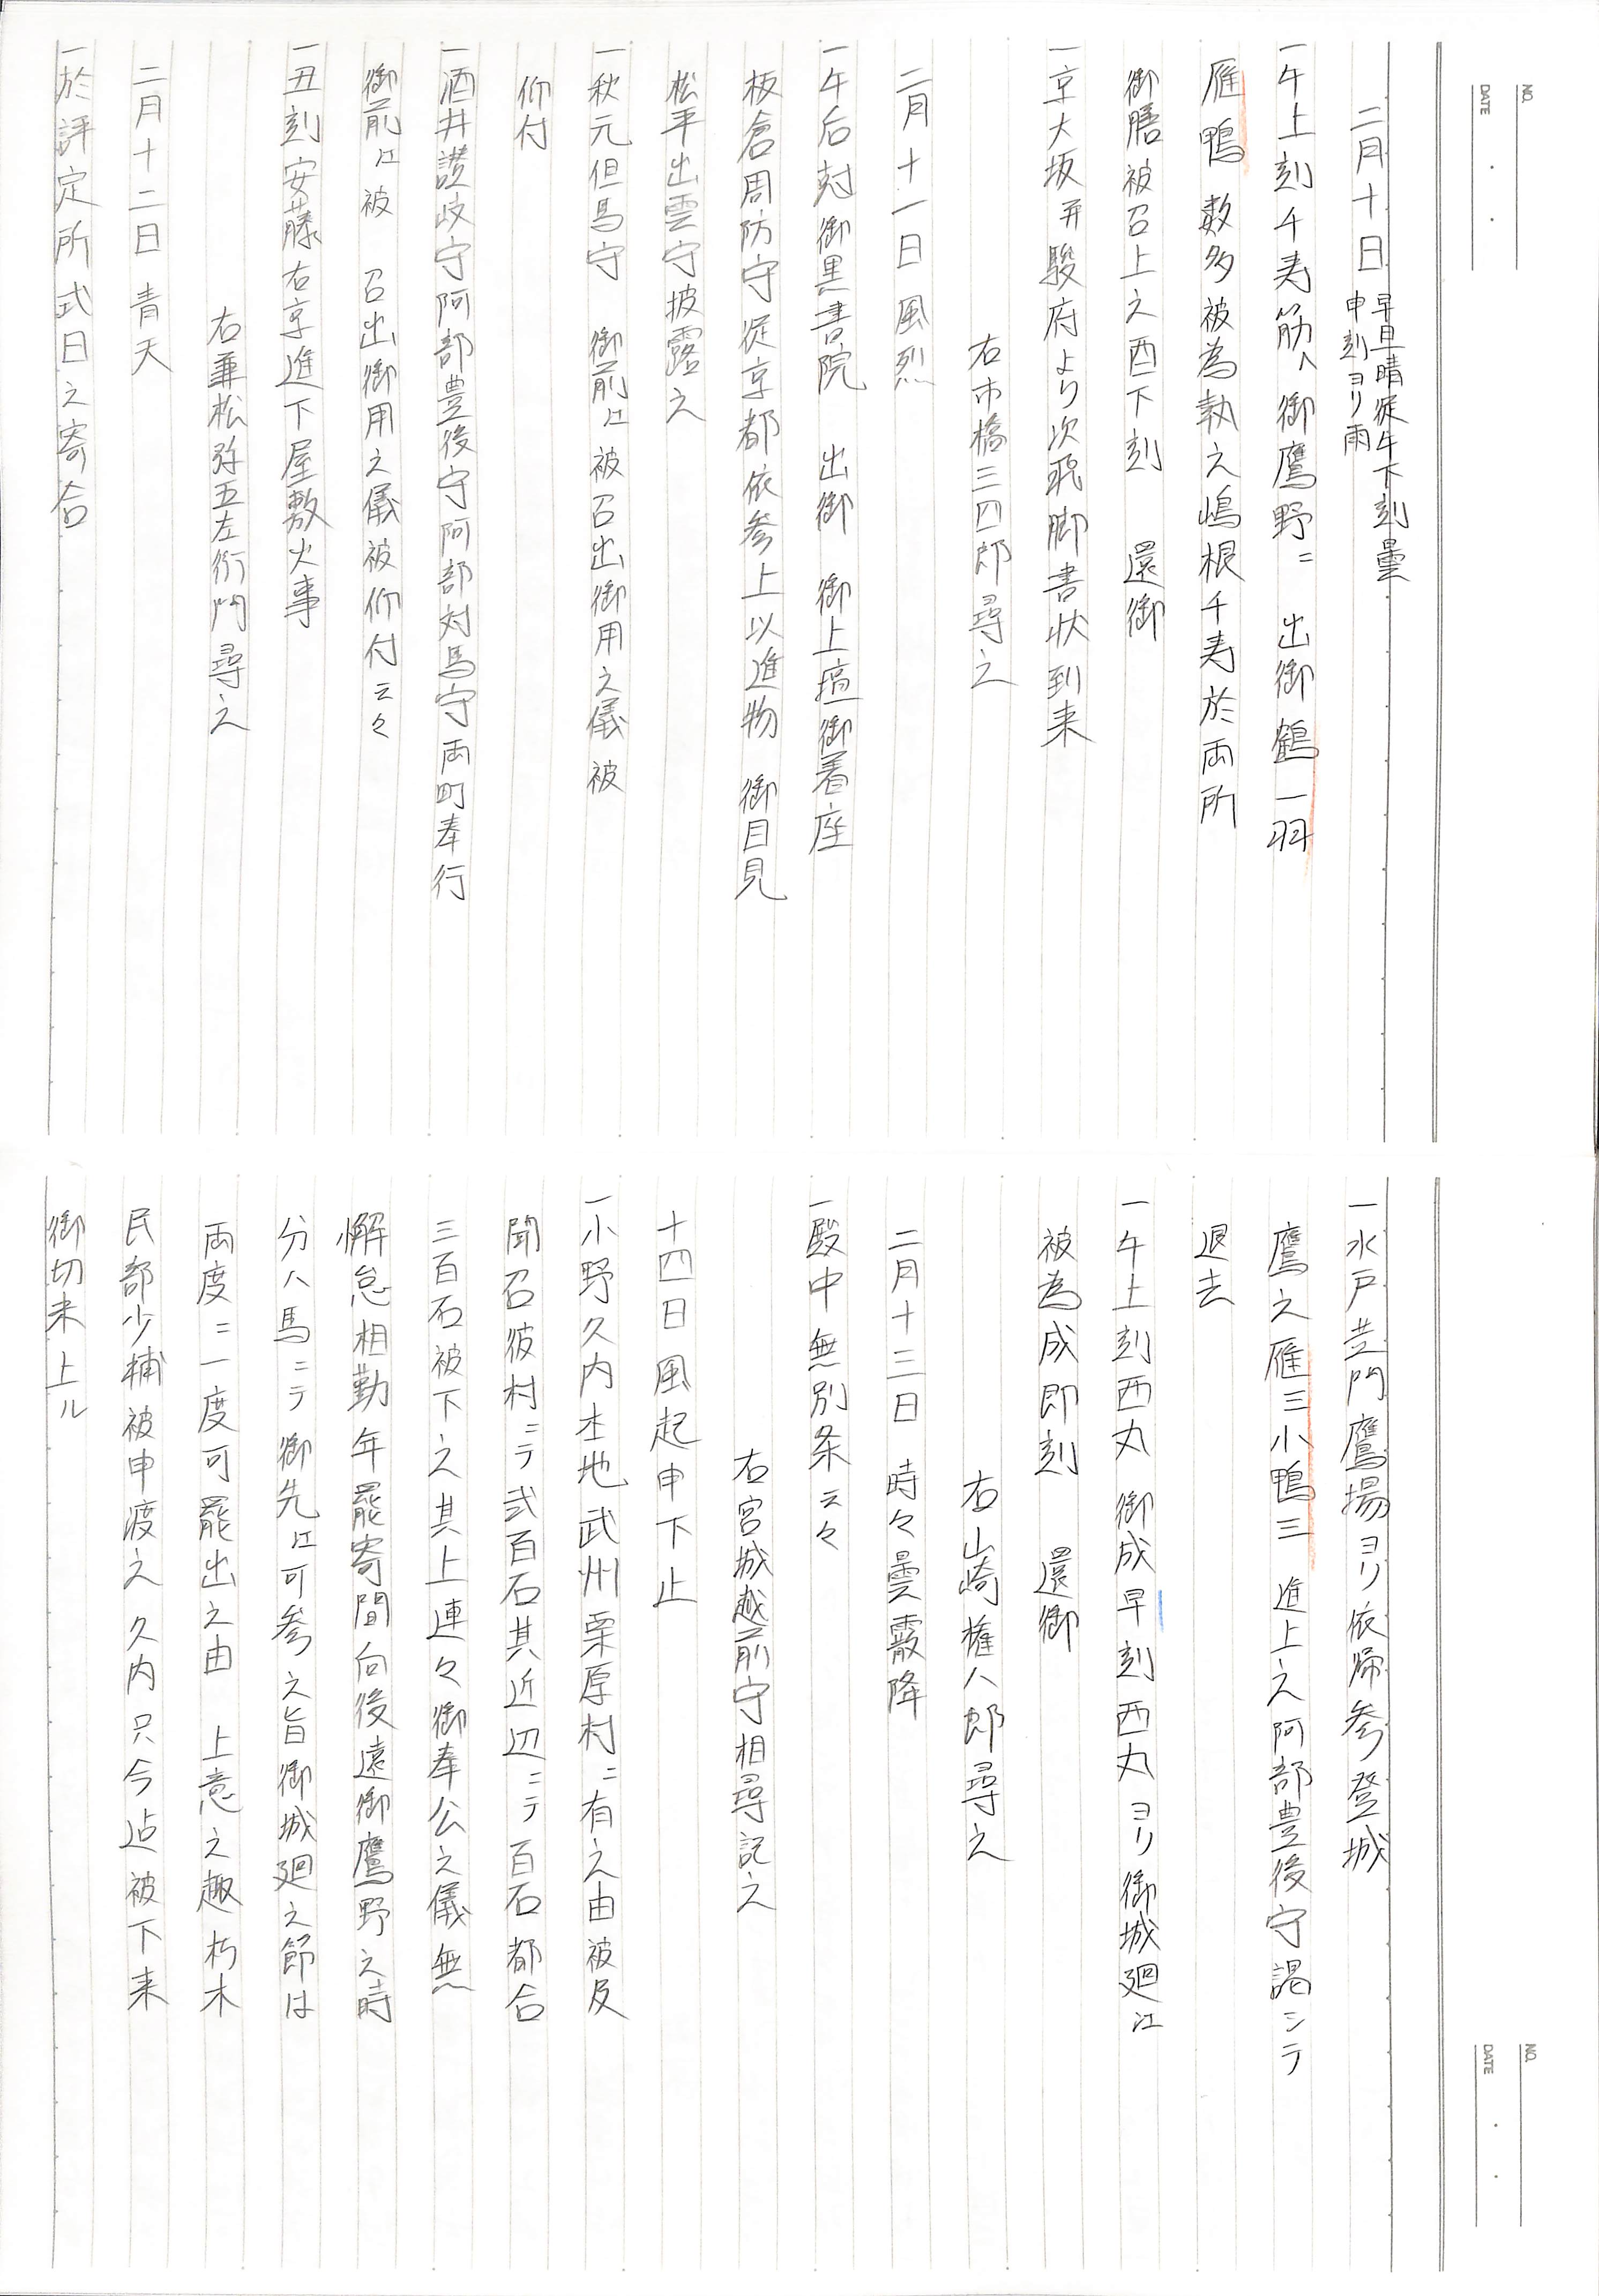 NO.
DATE
二月十日 早旦晴従午下刻曇
申刻ヨリ雨
一午上刻千寿筋へ御鷹野ニ 出御鶴一羽
雁鴨数多被為執之嶋根千寿於両所
御膳被召上之酉下刻 還御
一京大坂并駿府より次飛脚書状到来
右市橋三四郎尋之
二月十一日 風烈
一午后刻御黒書院 出御 御上壇御着座
板倉周防守従京都依参上以進物 御目見
松平出雲守披露之
一秋元但馬守 御前江被召出御用之儀被
仰付
一酒井讃岐守阿部豊後守阿部対馬守両町奉行
御前江被 召出御用之儀被仰付云々
一丑刻安藤右京進下屋敷火事
右兼松弥五左衛門尋之
二月十二日 青天
一於評定所式日之寄合
NO.
DATE
一水戸黄門鷹場ヨリ依帰参登城
鷹之雁三小鴨三 進上之阿部豊後守謁シテ
退去
一午上刻西丸 御成早刻西丸ヨリ御城廻江
被為成即刻 還御
右山崎権八郎尋之
二月十三日 時々曇霰降
一殿中無別条云々
右宮城越前守相尋記之
十四日 風起申下止
一小野久内本地武州栗原村ニ有之由被及
聞召彼村ニテ弐百石其近辺ニテ百石都合
三百石被下之其上連々御奉公之儀無
懈怠相勤年罷寄間向後遠御鷹野之時
分ハ馬ニテ御先江可参之旨御城廻之節は
両度ニ一度可罷出之由 上意之趣朽木
民部少輔被申渡之久内只今迠被下来
御切米上ル